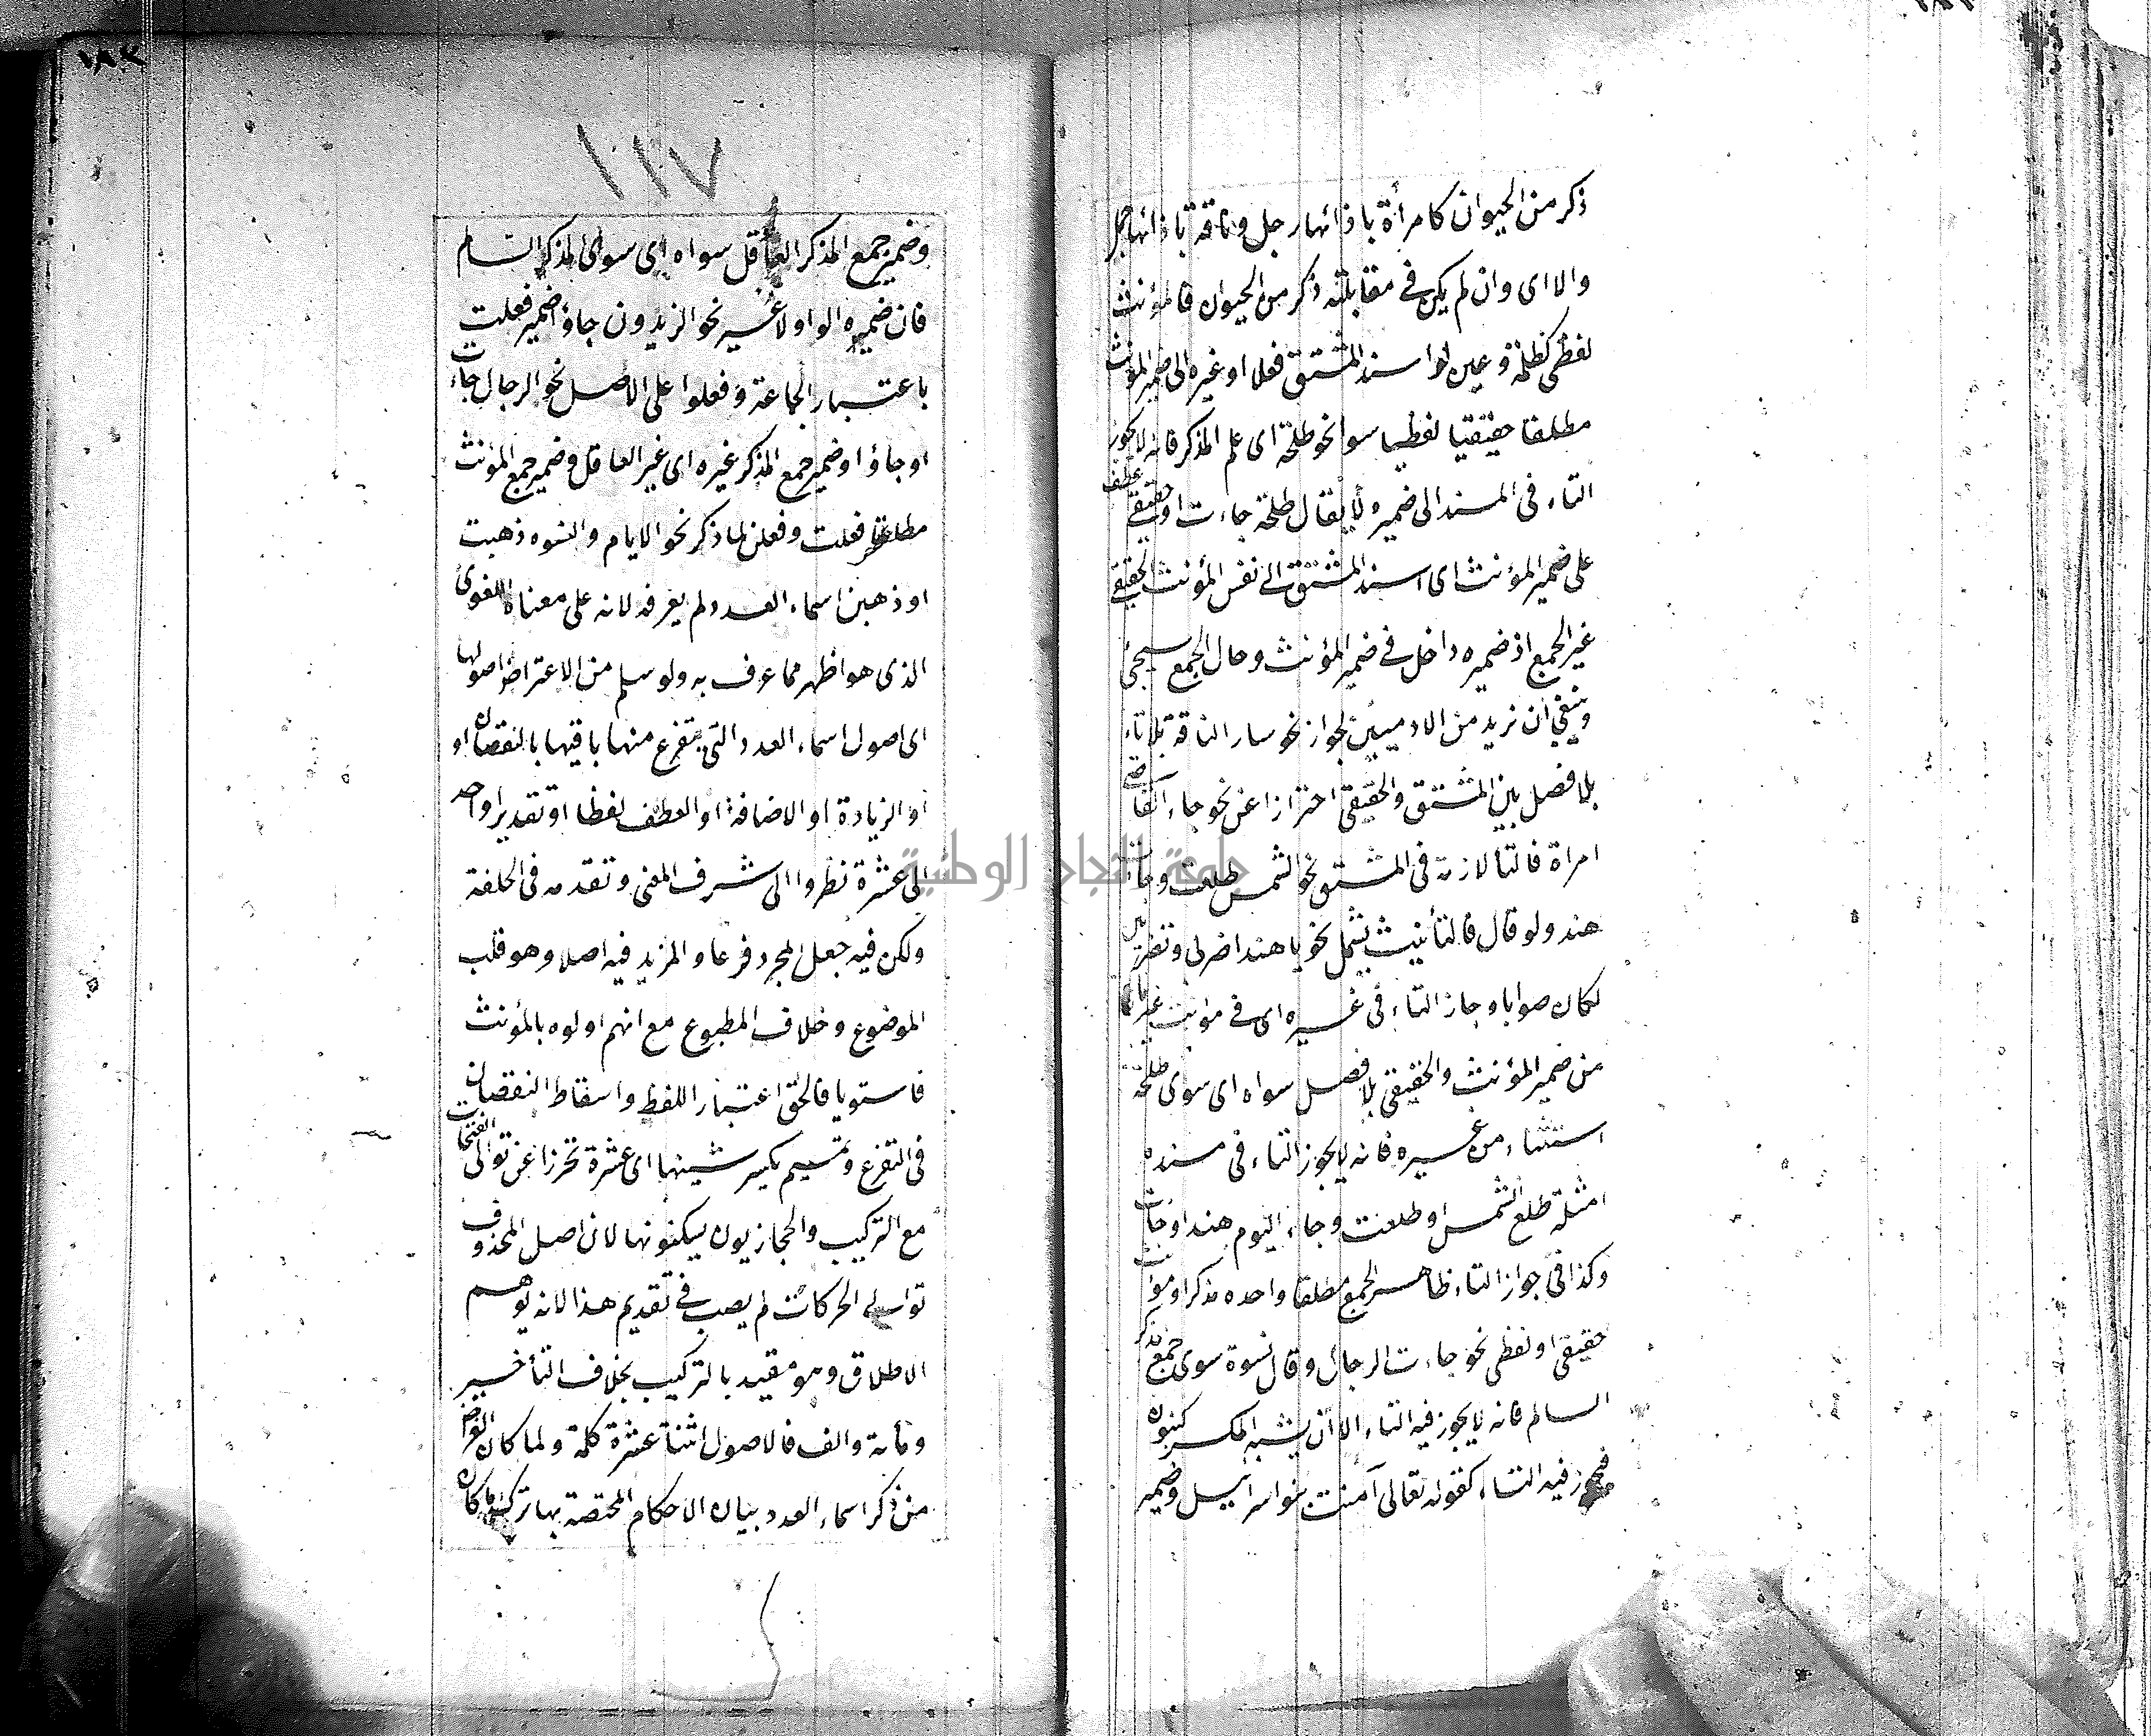 ذكر من الحيوان كامرأة بازائها رجل وناقة بازائها جمل
والا اى وان لم يكن فى مقابلته ذكر من الحيوان فالمؤنث
لفظى كظلمة وعين لو اسند المشتق فعلا او غيره الى ضمير المؤنث
مطلقا حقيقيا لفظيا سوا نحو طلحة اى علم المذكر فانه لا يجوز
التاء فى المسند الى ضميره لا يقال طلحة جاءت او حقيقى عطف
على ضمير المؤنث اى اسند المشتق الى نفس المؤنث الحقيقى
غير الجمع اذ ضميره داخل فى ضمير المؤنث وحال الجمع سيجئ
وينبغى ان نريد من الادميين لجواز نحو سار الناقة بلا تاء
بلا فصل بين المشتق والحقيقى احترازا عن نحو جاء القاضى
امراة فالتا لازمة فى المشتق نحو الشمس طلعت وجاءت
هند ولو قال فالتأنيث يشمل نحو يا هند اضربى وتضربين
لكان صوابا وجاز التاء فى غيره اى فى مؤنث غير
من ضمير المؤنث والحقيقى بلا فصل سواه اى سوى طلحة
استثناء من غيره فانه لا يجوز التاء فى مسنده
امثلة طلع الشمس او طلعت وجاء اليوم هند او جاءت
وكذا فى جواز التاء ظاهر الجمع مطلقا واحده مذكر او مؤنث
حقيقى او لفظى نحو جاءت الرجال وقال نسوة سوى جمع مذكر
السالم فانه لا يجوز فيه التاء الا ان يشبه المكسر كبنون
فيجوز فيه التاء كقوله تعالى آمنت بنو اسرائيل وضمير
١١٧
وضمير جمع المذكر العاقل سواه اى سوى المذكر السالم
فان ضميره الواو لا غير نحو الزيدون جاؤا ضمير فعلت
باعتبار الجماعة وفعلوا على الاصل نحو الرجال جاءت
او جاؤا وضمير جمع المذكر غيره اى غير العاقل وضمير جمع المؤنث
مطلقا فعلت وفعلن لما ذكر نحو الايام والنسوه ذهبت
او ذهبن اسماء العدد لم يعرفه لانه على معناه اللغوى
الذى هو اظهر مما عرف به ولو سلم من الاعتراض اصولها
اى اصول اسماء العدد التى يتفرع منها باقيها بالنقصان او
او الزيادة او الاضافة او العطف لفظا او تقديرا واحد
الى عشرة نظروا الى شرف المعنى وتقدمه فى الخلقة
ولكن فيه جعل المجرد فرعا والمزيد فيه اصلا وهو قلب
الموضوع وخلاف المطبوع مع انهم اولوه بالمؤنث
فاستويا فالحق اعتبار اللفظ واسقاط النقصان
فى التفرع وتميم يكسر شينها اى عشرة تحرزا عن توالى الفتحات
مع التركيب والحجازيون يسكنونها لان اصل المحذوف
توالى الحركات لم يصب فى تقديم هذا لانه يوهم
الاطلاق وهو مقيد بالتركيب بخلاف التأخير
ومائة والف فالاصول اثنتا عشرة كلمة ولما كان الغرض
من ذكر اسماء العدد بيان الاحكام المختصة بها كان
جامعة النجاح الوطنية